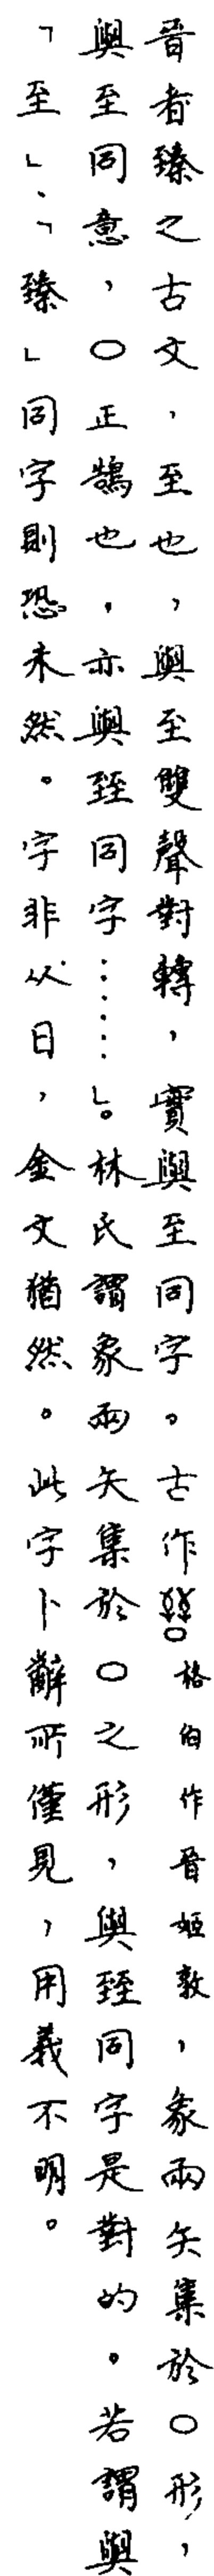 晉者臻之古文，至也，與至雙聲對轉，實與至同字。古作𢆉格伯作晉姬敦，象兩矢集於○形，
與至同意，○正鵠也，亦與臸同字……」。林氏謂象兩矢集於○之形，與臸同字是對的。若謂與
「至」、「臻」同字則恐未然。字非从日，金文猶然。此字卜辭所僅見，用義不明。